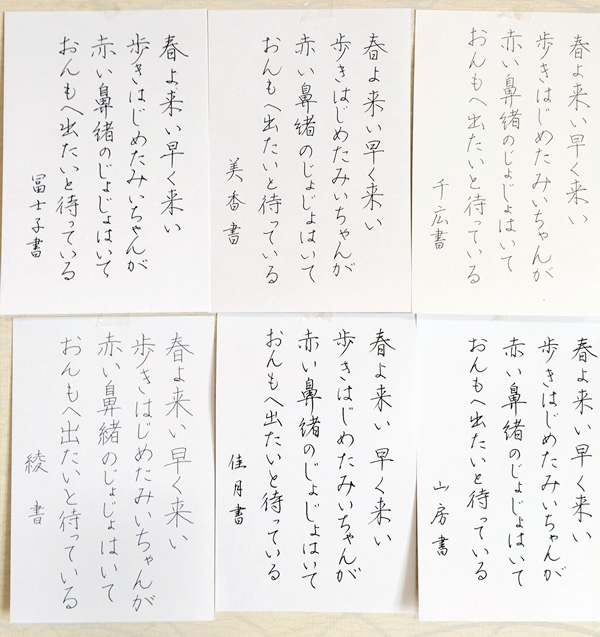 春よ来い早く来い
歩きはじめたみいちゃんが
赤い鼻緒のじょじょはいて
おんもへ出たいと待っている
冨士子書
春よ来い早く来い
歩きはじめたみいちゃんが
赤い鼻緒のじょじょはいて
おんもへ出たいと待っている
美香書
春よ来い早く来い
歩きはじめたみいちゃんが
赤い鼻緒のじょじょはいて
おんもへ出たいと待っている
千広書
春よ来い早く来い
歩きはじめたみいちゃんが
赤い鼻緒のじょじょはいて
おんもへ出たいと待っている
綾書
春よ来い早く来い
歩きはじめたみいちゃんが
赤い鼻緒のじょじょはいて
おんもへ出たいと待っている
佳月書
春よ来い早く来い
歩きはじめたみいちゃんが
赤い鼻緒のじょじょはいて
おんもへ出たいと待っている
山房書